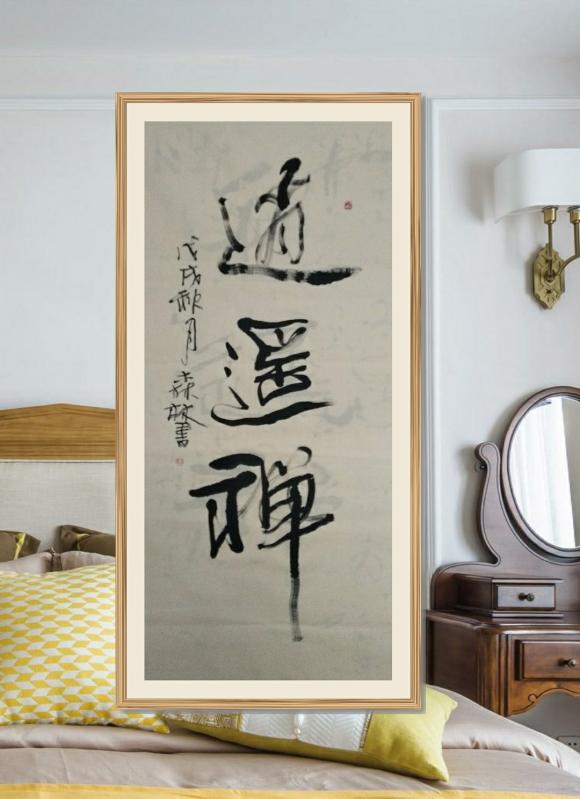 逍遥禅
戊戌秋月森敏書